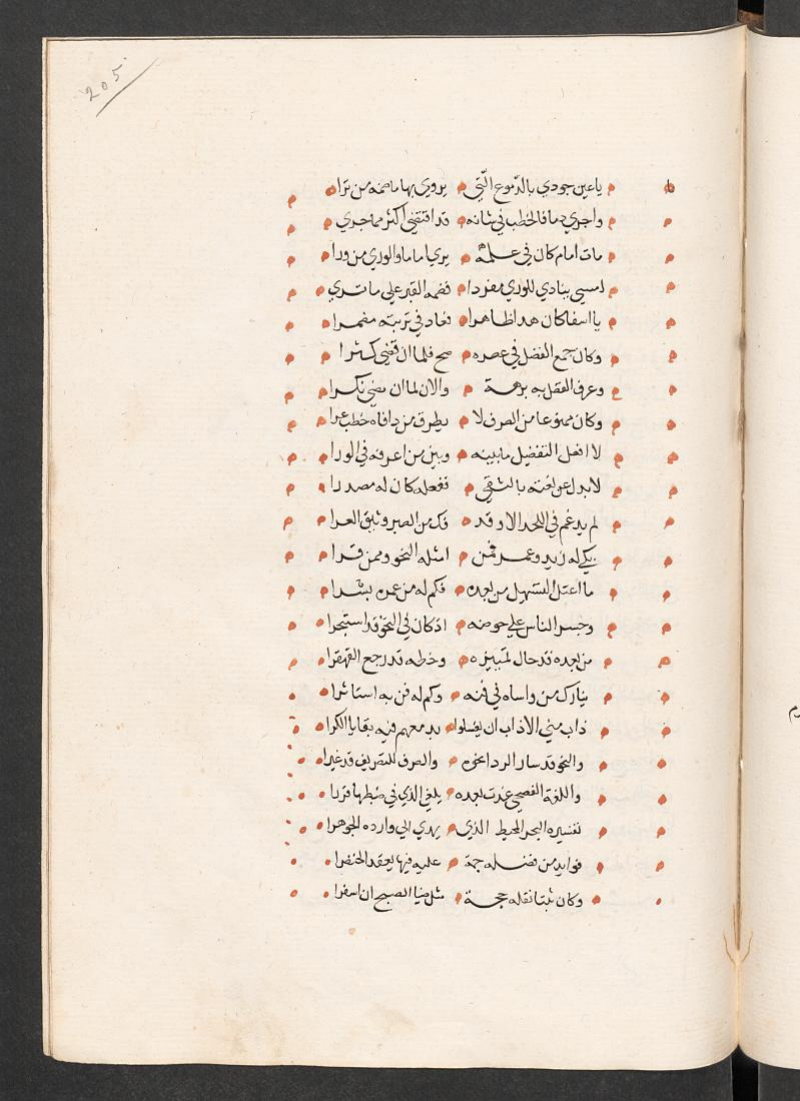 205
يا عين جودي بالدموع التي يروي بها ما ضمه من ثرا
واجري دما فالخطب في شانه قد اقتضى اكثر مما جري
مات امام كان في علمه يري اماما والوري من ورا
امسي ينادي للوري مفردا فضمه القبر علي ما تري
يا اسفا كان هدا ظاهرا فعاد في تربته مضمرا
وكان جمع الفضل في عصره صح فلما ان قضي كسرا
وعرف الفضل به برهة والان لما ان مضي نكرا
وكان ممنوعا من الصرف لا يطرق من وافاه خطب عرا
لا افعل التفضيل ما بينه وبين من اعرفه في الورا
لا بدل عن نعته بالتقي ففعله كان له مصدرا
لم يدغم في اللحد الا وقد فك من الصبر وثيق العرا
بكي له زيد وعمرو فمن امثلة النحو وممن قرا
ما اعتل التسهيل من بعده فكم له من عسرة يسرا
وجسر الناس علي خوضه اذ كان في النحو قد استبحرا
من بعده قد حال تمييزه وحظه قد رجع القهقرا
شارك من واساه في فنه وكم له فن به استاثرا
داب مني الاداب ان يغسلوا بدمعهم فيه بقايا الكرا
والنحو قد سار الردا نحوه والصرف للتصريف قد غيرا
واللغة الفصحي غدت بعده يلغي الذي في ضبطها قررا
تفسيره البحر المحيط الذي يهدي الي وارده الجوهرا
فوايد من فضله جمة عليه فيها يعقد الخنصرا
وكان ثبتا نقله حجة مثل ضيا الصبح ان اسفرا